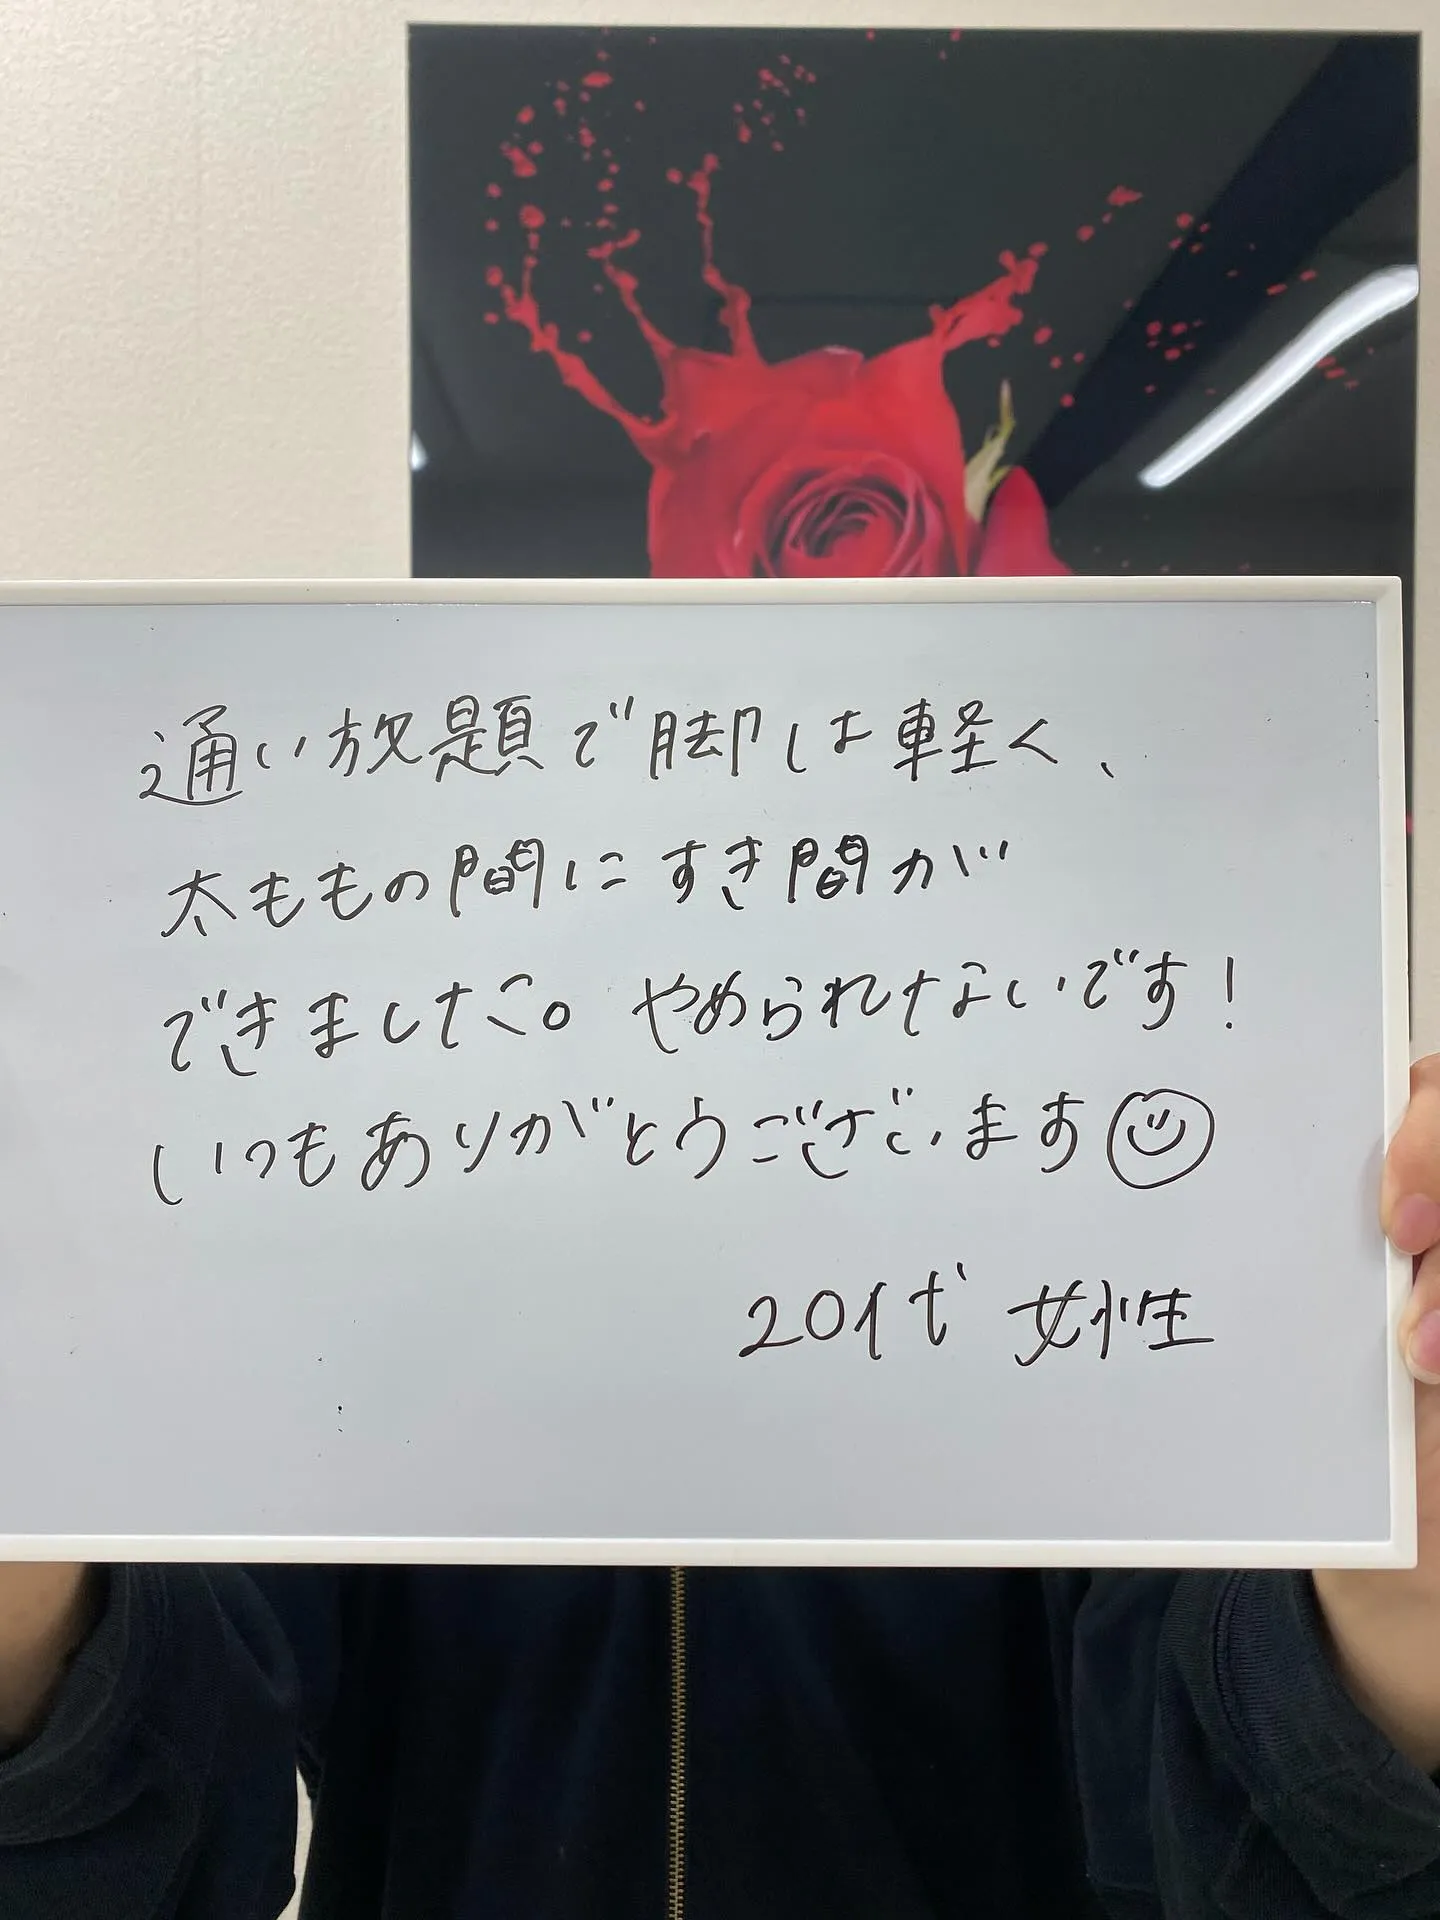 通い放題で脚は軽く、
太ももの間にすき間が
できました。やめられないです!
いつもありがとうございます
20代 女性